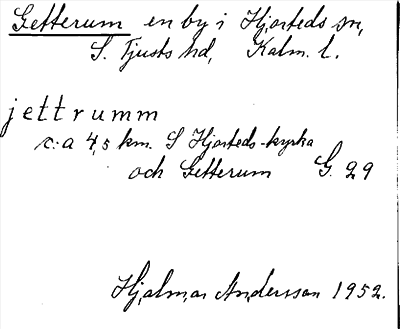 Getterum en by i Hjorteds sn,
S. Tjusts hd, Kalm. l.
jettrumm
c:a 4,5 km. S Hjorteds-kyrka
och Getterum G. 29
Hjalmar Andersson 1952.